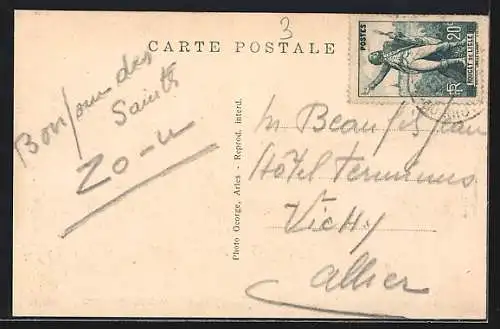 3
CARTE POSTALE
POSTES
20c
RF
ROUGET DE LISLE
Bonjour des
Saintes
Zo-u
Photo George, Arles - Reprod. interd.
Hôtel Terminus
Vichy
Allier